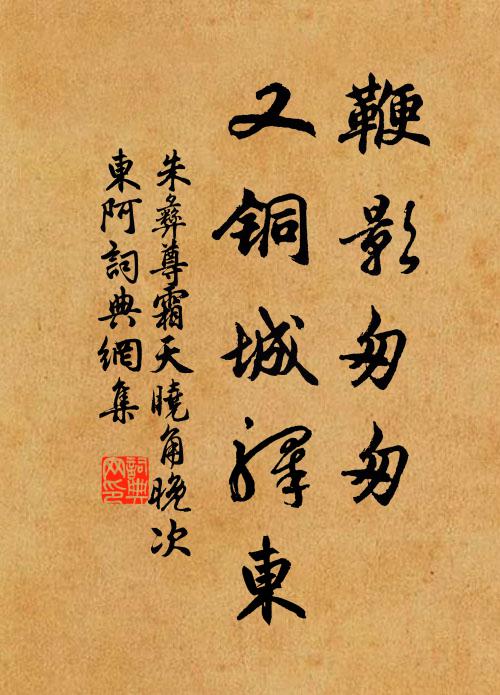 鞭影匆匆
又铜城驛東
朱彝尊霜天曉角晚次
東阿詞典網集
詞典
网印